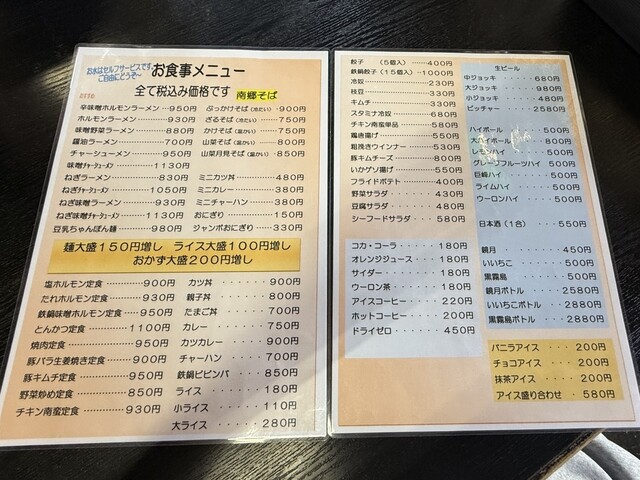 お水はセルフサービスです。
ご自由にどうぞ〜
お食事メニュー
全て税込み価格です
辛味噌ホルモンラーメン・・・950円
ホルモンラーメン・・・・・930円
味噌野菜ラーメン・・・・880円
醤油ラーメン・・・・・・700円
チャーシューメン・・・・950円
味噌ﾁｬｰｼｭｰﾒﾝ・・・1130円
ねぎラーメン・・・・・830円
ねぎﾁｬｰｼｭｰﾒﾝ・・・・1050円
ねぎ味噌ラーメン・・・930円
ねぎ味噌ﾁｬｰｼｭｰﾒﾝ・・・1130円
豆乳ちゃんぽん麺・・・・980円
南郷そば
ぶっかけそば(冷たい)・900円
ざるそば(冷たい)・・・・750円
かけそば(温かい)・・・・750円
山菜そば(温かい)・・・・800円
山菜月見そば(温かい)・850円
ミニカツ丼・・・・・480円
ミニカレー・・・・・380円
ミニチャーハン・・・380円
おにぎり・・・・・・150円
ジャンボおにぎり・・330円
麺大盛150円増し ライス大盛100円増し
おかず大盛200円増し
塩ホルモン定食・・・・・900円
たれホルモン定食・・・・930円
鉄鍋味噌ホルモン定食・・950円
とんかつ定食・・・・・1100円
焼肉定食・・・・・・・950円
豚バラ生姜焼き定食・・・900円
豚キムチ定食・・・・・850円
野菜炒め定食・・・・・850円
チキン南蛮定食・・・・930円
カツ丼・・・・・・900円
親子丼・・・・・・800円
たまご丼・・・・・700円
カレー・・・・・・750円
カツカレー・・・・900円
チャーハン・・・・700円
鉄鍋ビビンバ・・・850円
ライス・・・・・・180円
小ライス・・・・・110円
大ライス・・・・・280円
餃子 (5個入)・・・・400円
鉄鍋餃子(15個入)・・1000円
冷奴・・・・・・・・・230円
枝豆・・・・・・・・・330円
キムチ・・・・・・・・330円
スタミナ冷奴・・・・・680円
チキン南蛮単品・・・・580円
鶏唐揚げ・・・・・・・550円
粗挽きウインナー・・・530円
豚キムチーズ・・・・・800円
いかゲソ揚げ・・・・・550円
フライドポテト・・・・400円
野菜サラダ・・・・・・430円
豆腐サラダ・・・・・・480円
シーフードサラダ・・・580円
コカ・コーラ・・・・180円
オレンジジュース・・180円
サイダー・・・・・・180円
ウーロン茶・・・・・180円
アイスコーヒー・・・220円
ホットコーヒー・・・200円
ドライゼロ・・・・・450円
生ビール
中ジョッキ・・・・680円
大ジョッキ・・・・980円
小ジョッキ・・・・480円
ピッチャー・・・・2580円
ハイボール・・・・500円
大ハイボール・・・800円
レモンハイ・・・・500円
グレープフルーツハイ・500円
巨峰ハイ・・・・・500円
ライムハイ・・・・500円
ウーロンハイ・・・500円
日本酒(1合)・・・550円
鏡月・・・・・・・450円
いいちこ・・・・・500円
黒霧島・・・・・・500円
鏡月ボトル・・・・2580円
いいちこボトル・・2880円
黒霧島ボトル・・・2880円
バニラアイス・・・200円
チョコアイス・・・200円
抹茶アイス・・・・200円
アイス盛り合わせ・580円